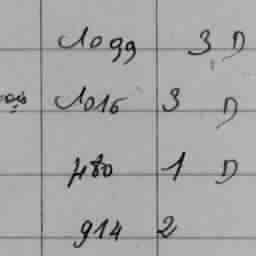 1099 3 D
1016 3 D
480 1 D
914 2